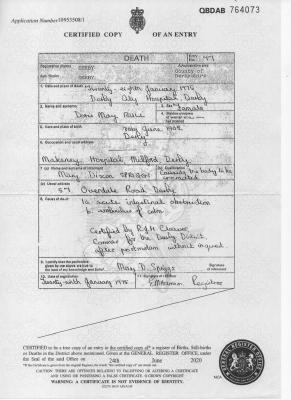 QBDAB 764073
Application Number 10953508/1
CERTIFIED COPY OF AN ENTRY
DEATH
Entry No.
Registration district DERBY
Administrative area
Sub-district DERBY
County of Derbyshire
1. Date and place of death
Twenty-eighth January 1975
Derby City Hospital Derby
2. Name and surname
3. Sex Female
Doris May
5. Date and place of birth
June 1902
Derby
6. Occupation and usual address
Makeney Hospital Milford Derby
7.(a) Name and surname of informant
(b) Qualification
Mary Dixon SPRIGGS
Causing the body to be cremated
(c) Usual address
59 Overdale Road Derby
8. Cause of death
1a acute intestinal obstruction
b. volvulus of colon
Certified by
Coroner for the Derby District
after postmortem without inquest
9. I certify that the particulars given by me above are true to the best of my knowledge and belief
Mary D. Spriggs
Signature of informant
10. Date of registration
11. Signature of registrar
January 1975
Registrar
CERTIFIED to be a true copy of an entry in the certified copy of a register of Births, Still-births
or Deaths in the District above mentioned. Given at the GENERAL REGISTER OFFICE, under
the Seal of the said Office on 24th June 2020
CAUTION: THERE ARE OFFENCES RELATING TO FALSIFYING OR ALTERING A CERTIFICATE
AND USING OR POSSESSING A FALSE CERTIFICATE. © CROWN COPYRIGHT
WARNING: A CERTIFICATE IS NOT EVIDENCE OF IDENTITY.
GENERAL REGISTER OFFICE
ENGLAND